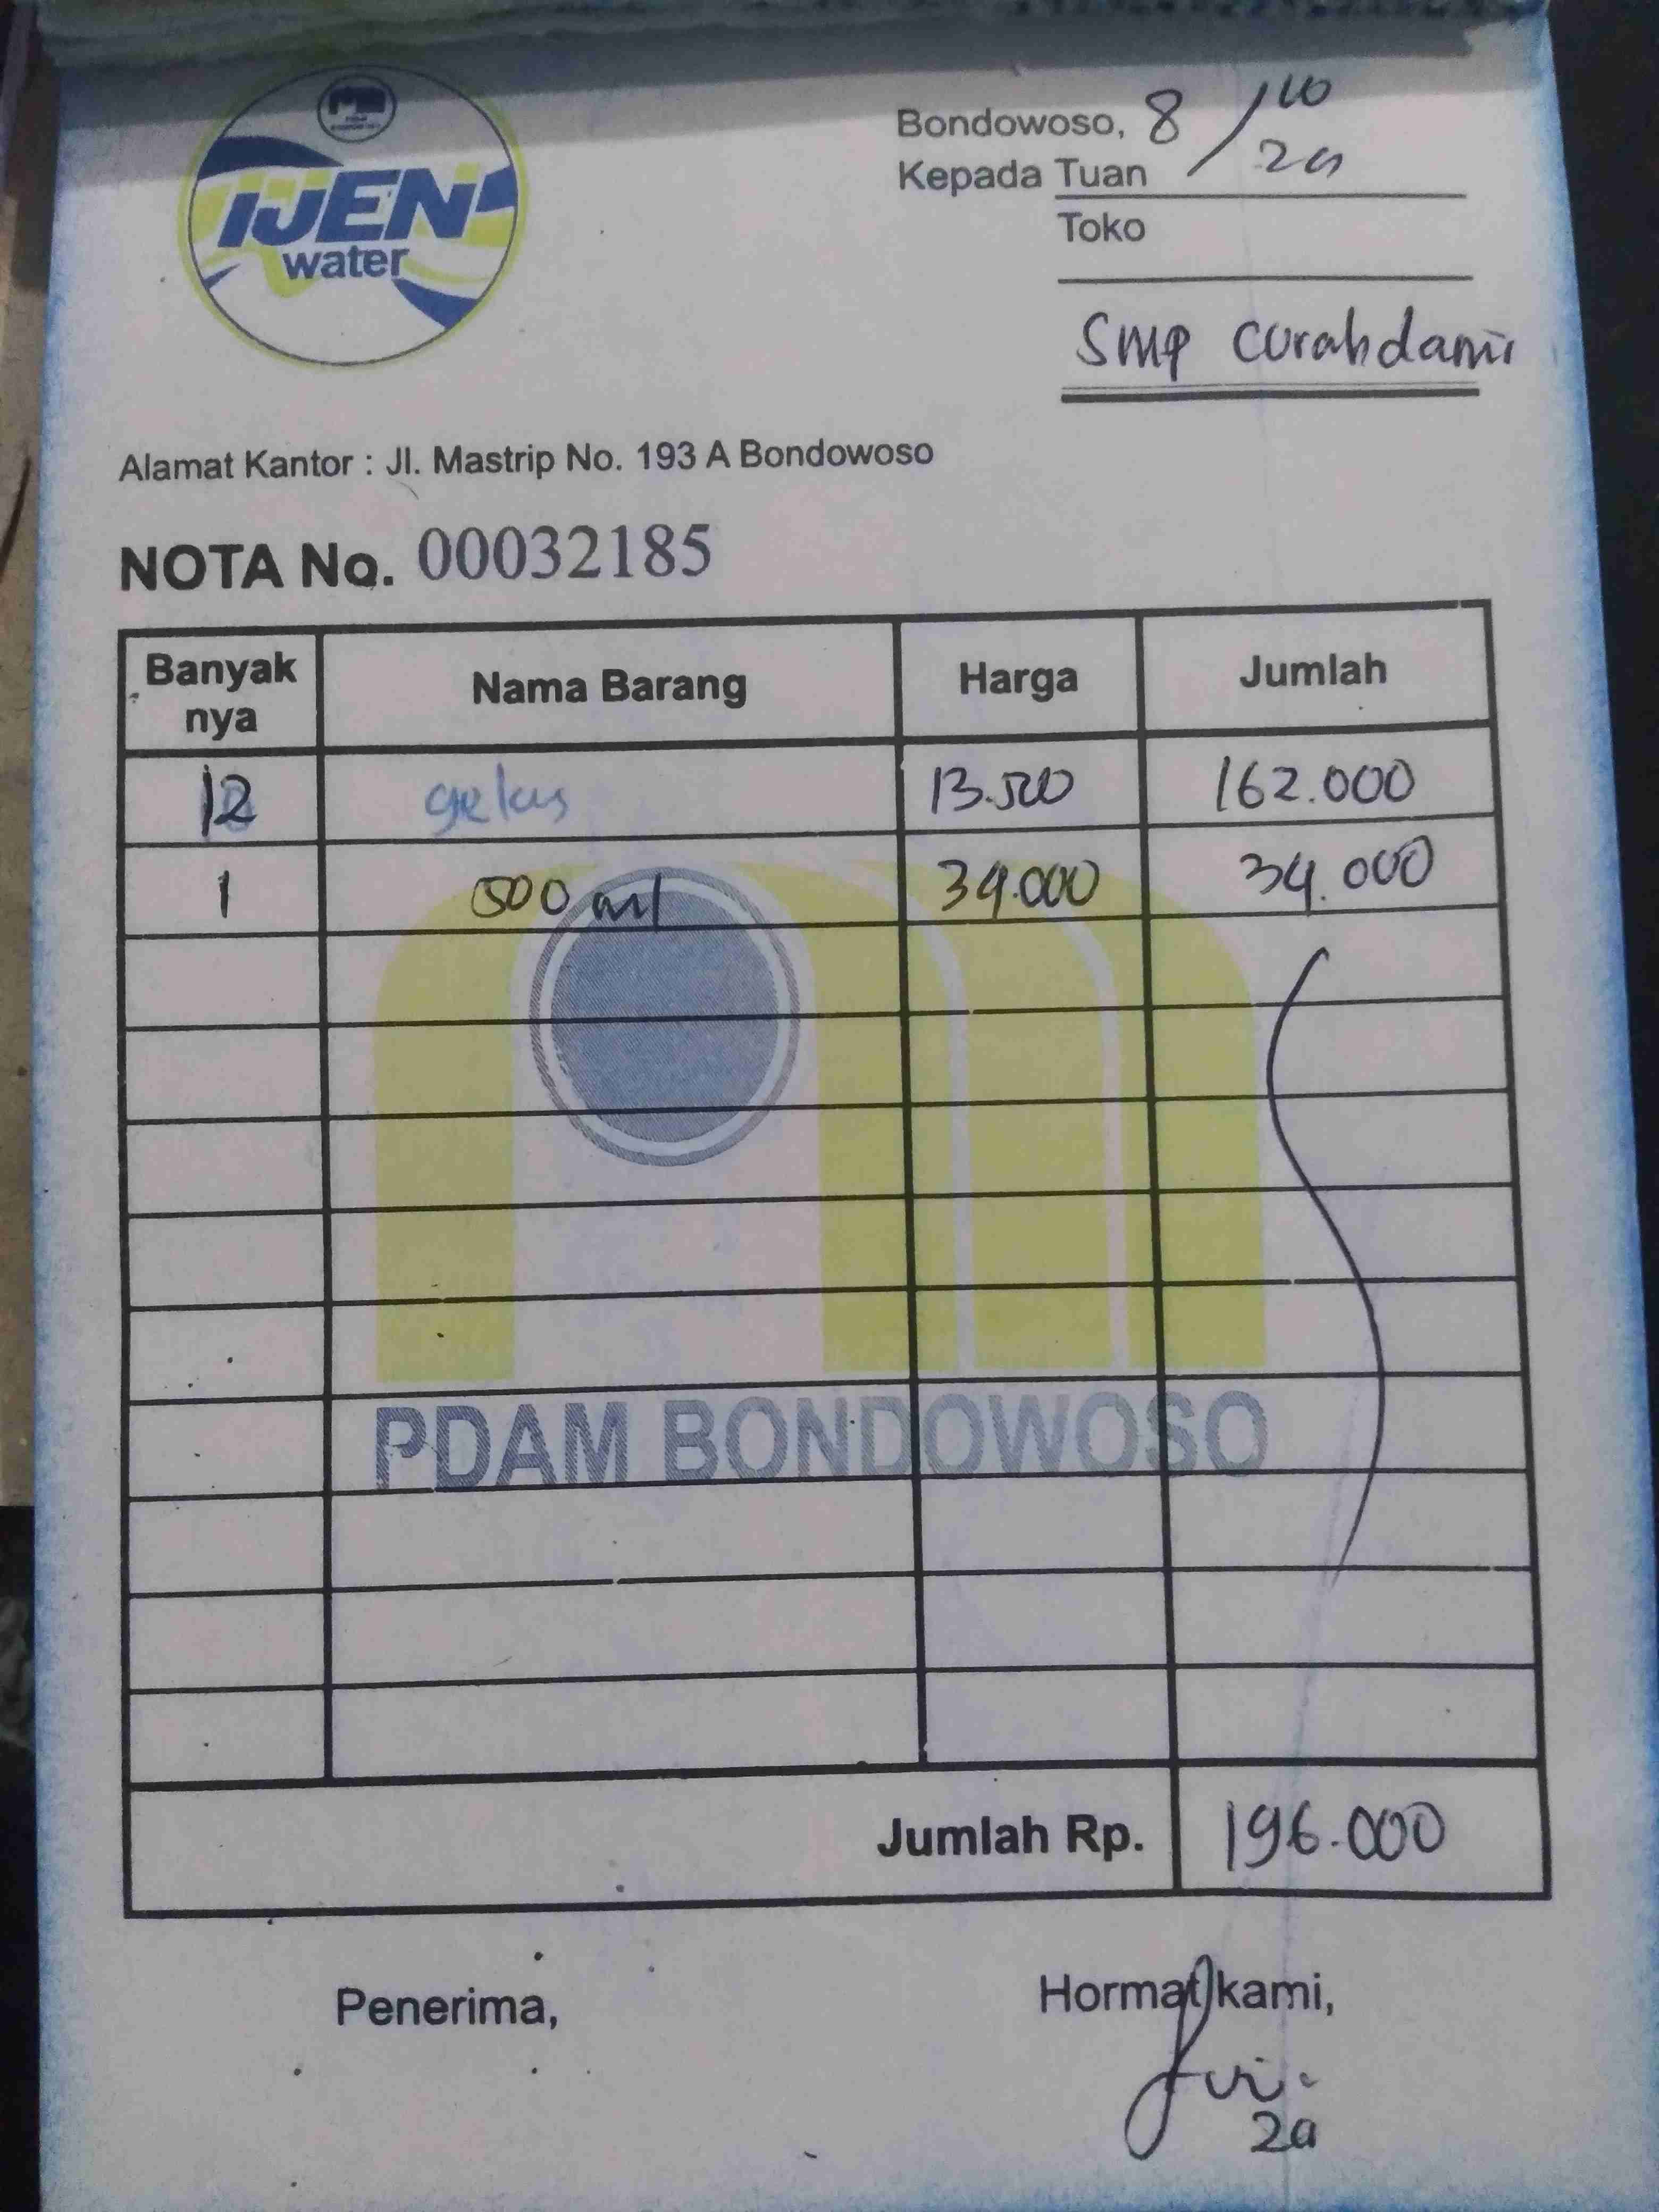 IJEN
water
Bondowoso, 8/10
Kepada Tuan
Toko
SMP Curahdami
Alamat Kantor : Jl. Mastrip No. 193 A Bondowoso
NOTA No. 00032185
Banyak nya Nama Barang Harga Jumlah
12 gelas 13.500 162.000
1 500 ml 34.000 34.000
PDAM BONDOWOSO
Jumlah Rp. 196.000
Penerima, Hormat kami,